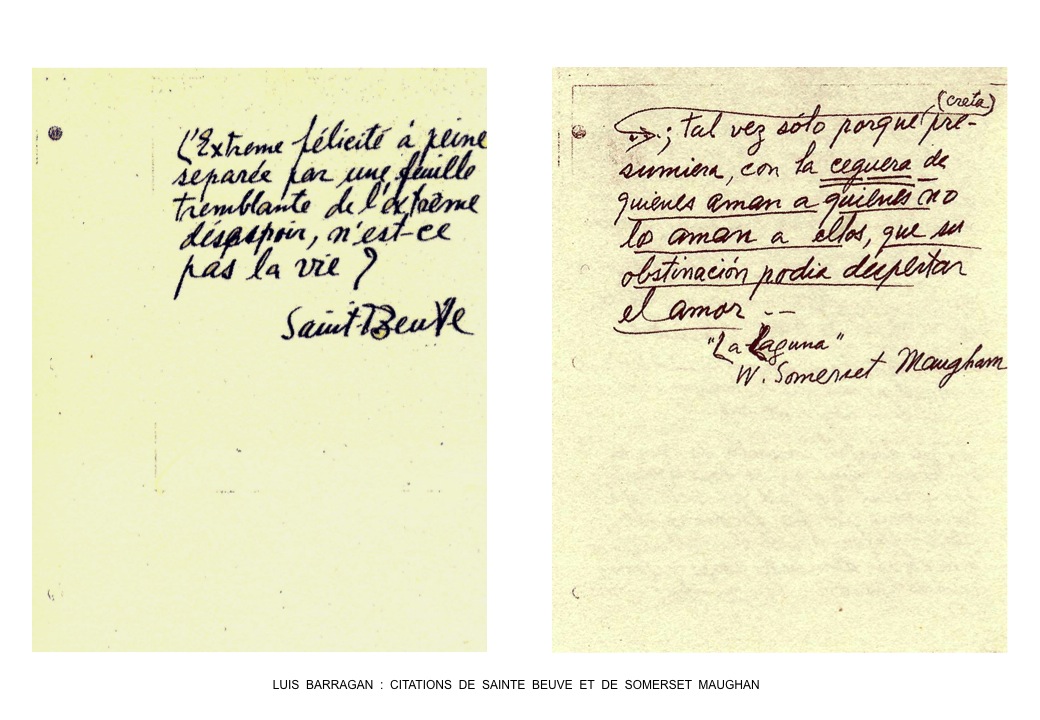 L'Extreme félicité à peine
separée par une feuille
tremblante de l'extrême
désespoir, n'est-ce
pas la vie ?
Saint-Beuve
(creta)
; tal vez sólo porque pre-
sumiera, con la ceguera de
quienes aman a quienes no
lo aman a ellos, que su
obstinación podia despertar
el amor --
"La Laguna"
W. Somerset Maugham
LUIS BARRAGAN : CITATIONS DE SAINTE BEUVE ET DE SOMERSET MAUGHAN